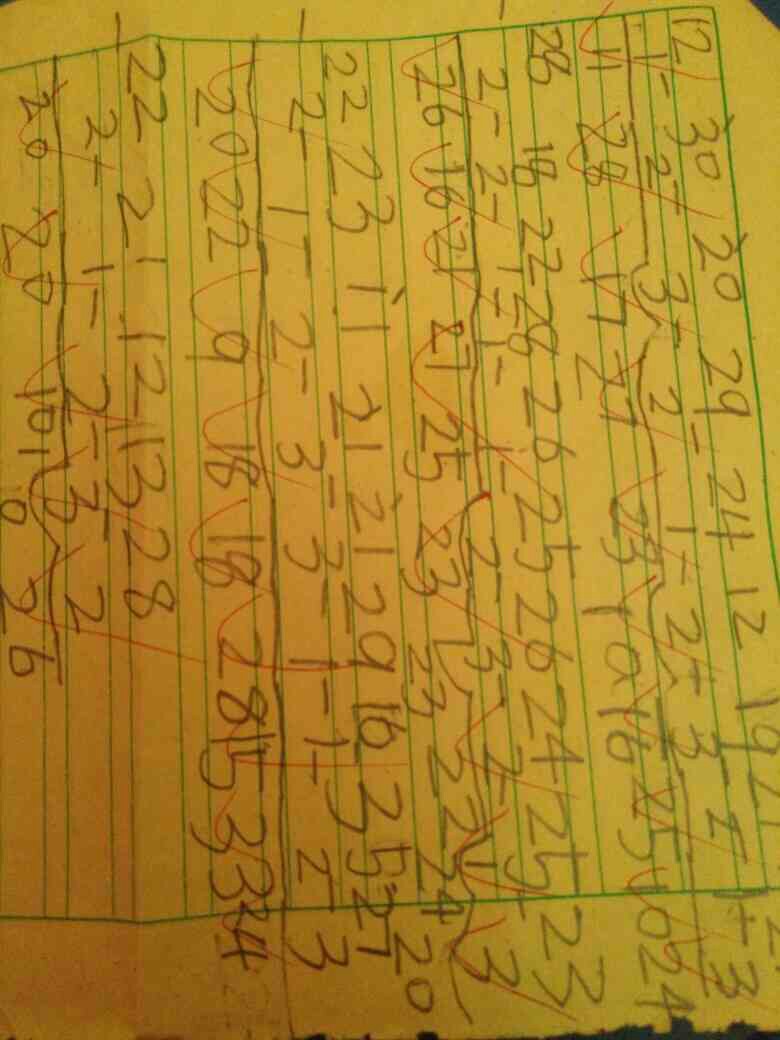 12 30 20 29 24 12 19 27
1- 2- 3- 2- 1- 2- 3- 2 1- 3
11 28 17 27 23 10 16 25 10 24
28 18 22 28 26 25 26 24 25 23
2- 2- 1- 1- 1- 2- 3- 2 1 3
26 16 21 27 25 23 23 22 24 20
22 23 11 21 21 29 16 35 27
2- 1- 2- 3- 3- 1- 1- 2- 3
20 22 9 18 18 28 15 33 24
22 21 12 13 28
2- 1- 2- 3 2
20 20 10 10 26